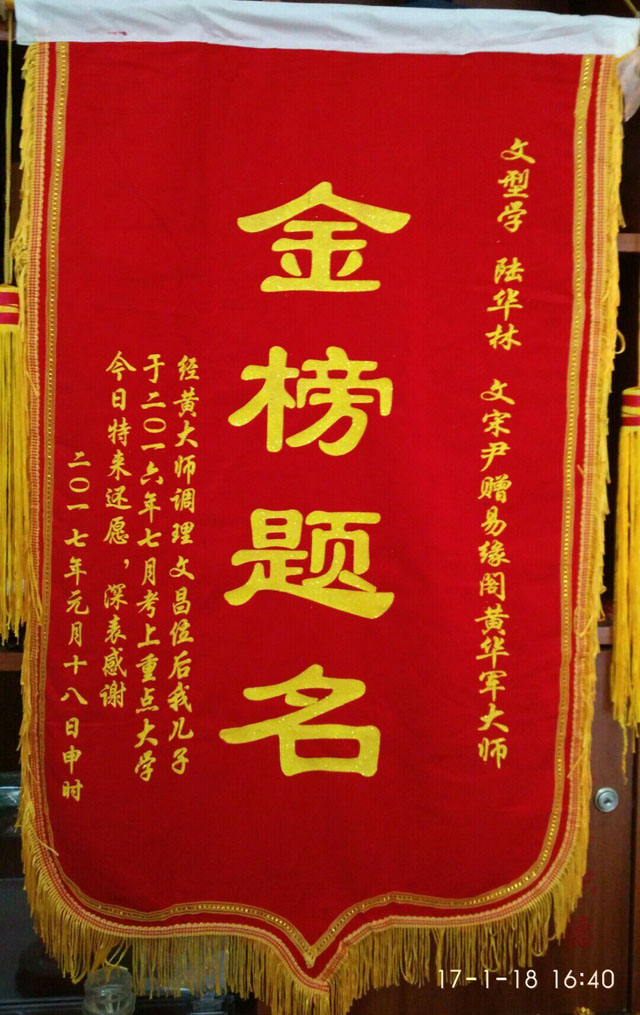 文型学 陆华林 文宋尹赠易缘阁黄华军大师
金榜题名
经黄大师调理文昌位后我儿子
于二〇一六年七月考上重点大学
今日特来还愿，深表感谢
二〇一七年元月十八日申时
17-1-18 16:40